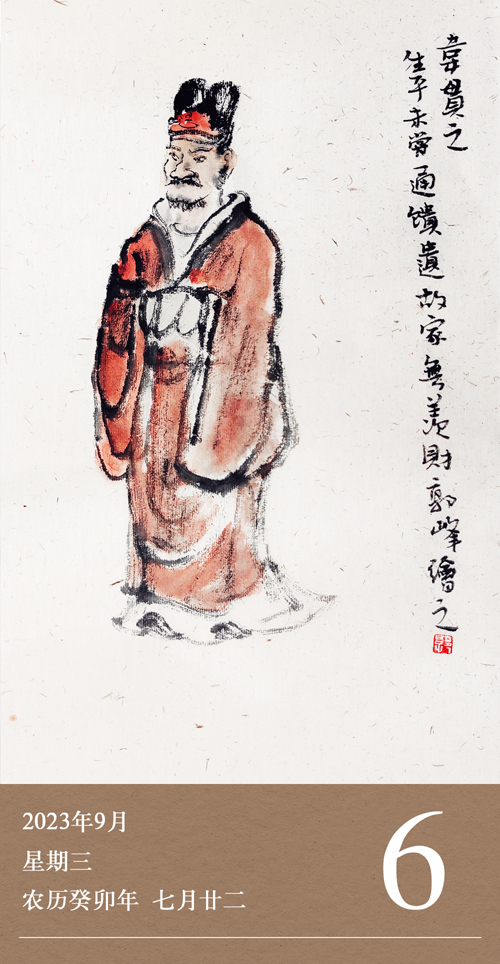 韋貫之
生平未嘗通饋遺故家無羨財郭峰繪之
2023年9月
星期三
农历癸卯年 七月廿二
6